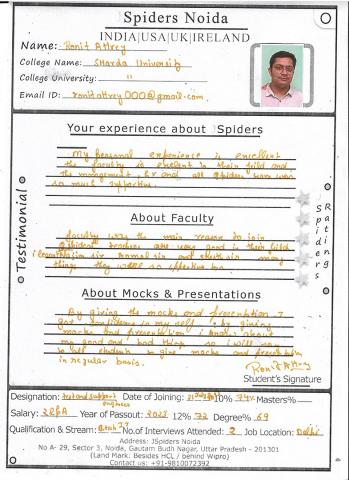 Spiders Noida
INDIA|USA|UK|IRELAND
Name: Ronit Attrey
College Name: Sharda University
College University: "
Email ID: ronitattrey000@gmail.com
Your experience about JSpiders
My personal experience is excellent
the faculty is exelent in their field and
the management also and all
so much supportive.
About Faculty
faculty was the main reason to join
teachers are very good in their field
sir and many
things they
About Mocks & Presentations
By giving the mocks and presentation I
got confidence in my self & by giving
mocks and presentation I know about
my good and bad things so I will say
to all students to give mocks and presentation
in regular basis.
Testimonial
Spiders
Ratings
Ronit Attrey
Student's Signature
Designation: test and support engineer Date of Joining: 10% 74% Masters%
Salary: 2LPA Year of Passout: 2023 12% 72 Degree% 69
Qualification & Stream: Btech IT No.of Interviews Attended: 2 Job Location: Delhi
Address: JSpiders Noida
No A- 29, Sector 3, Noida, Gautam Bugh Nagar, Uttar Pradesh - 201301
(Land Mark: Besides HCL / behind Wipro)
Contact us: +91-9810072392